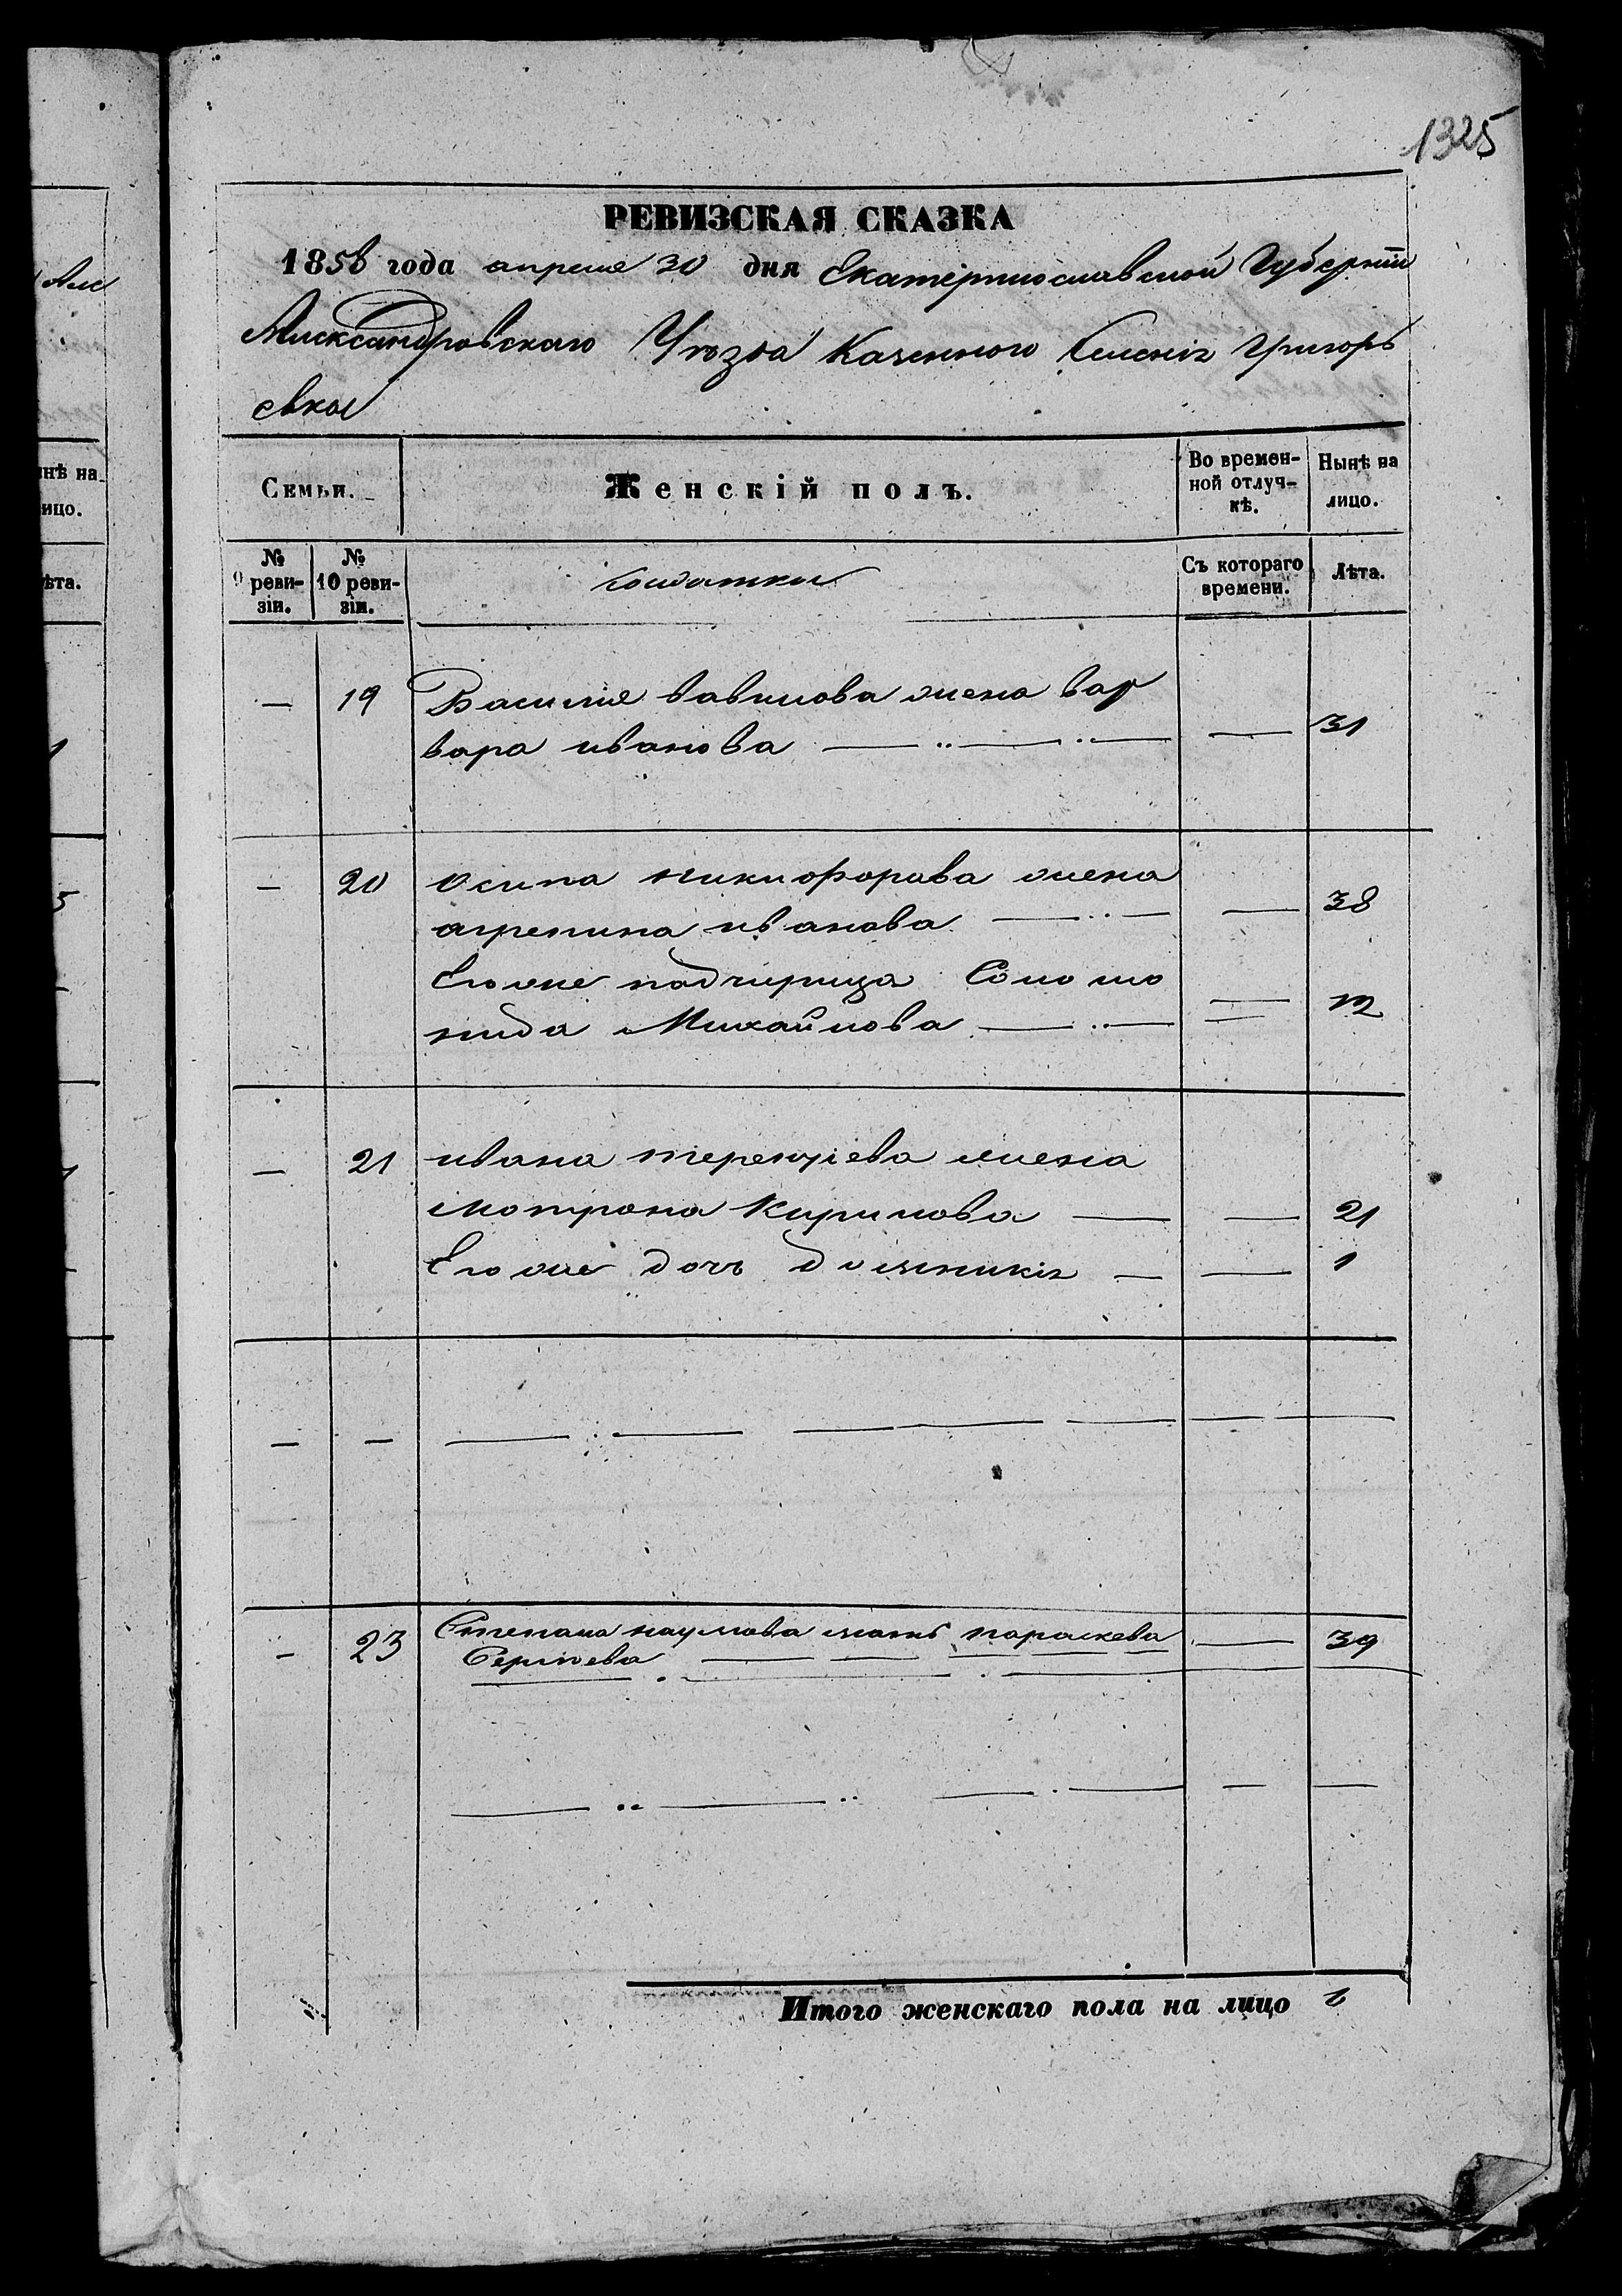 1325
РЕВИЗСКАЯ СКАЗКА
1858 года апреля 30 дня Екатеринославской Губернiи
Александровского Уѣзда Казенного Селенiя Григорь
евки
Семьи.
Женскiй полъ.
Во времен-
ной отлуч-
кѣ.
Нынѣ на
лицо.
№
9 реви-
зiи.
№
10 реви-
зiи.
солдатки
Съ котораго
времени.
Лѣта.
— 19 Василия вавилова жена вар
вара иванова — 31
— 20 Осипа никифорова жена
агрепина иванова — 38
Его же подчерица Соло мо
нида Михайлова — 12
— 21 ивана терентiева жена
Мотрона Кирилова — 21
Его же дочъ домникiя — 1
— —
— 23 Степана наумова мать параскева — 39
Сергѣева
Итого женскаго пола на лицо 6
Але
нѣ на
ицо.
ѣта.